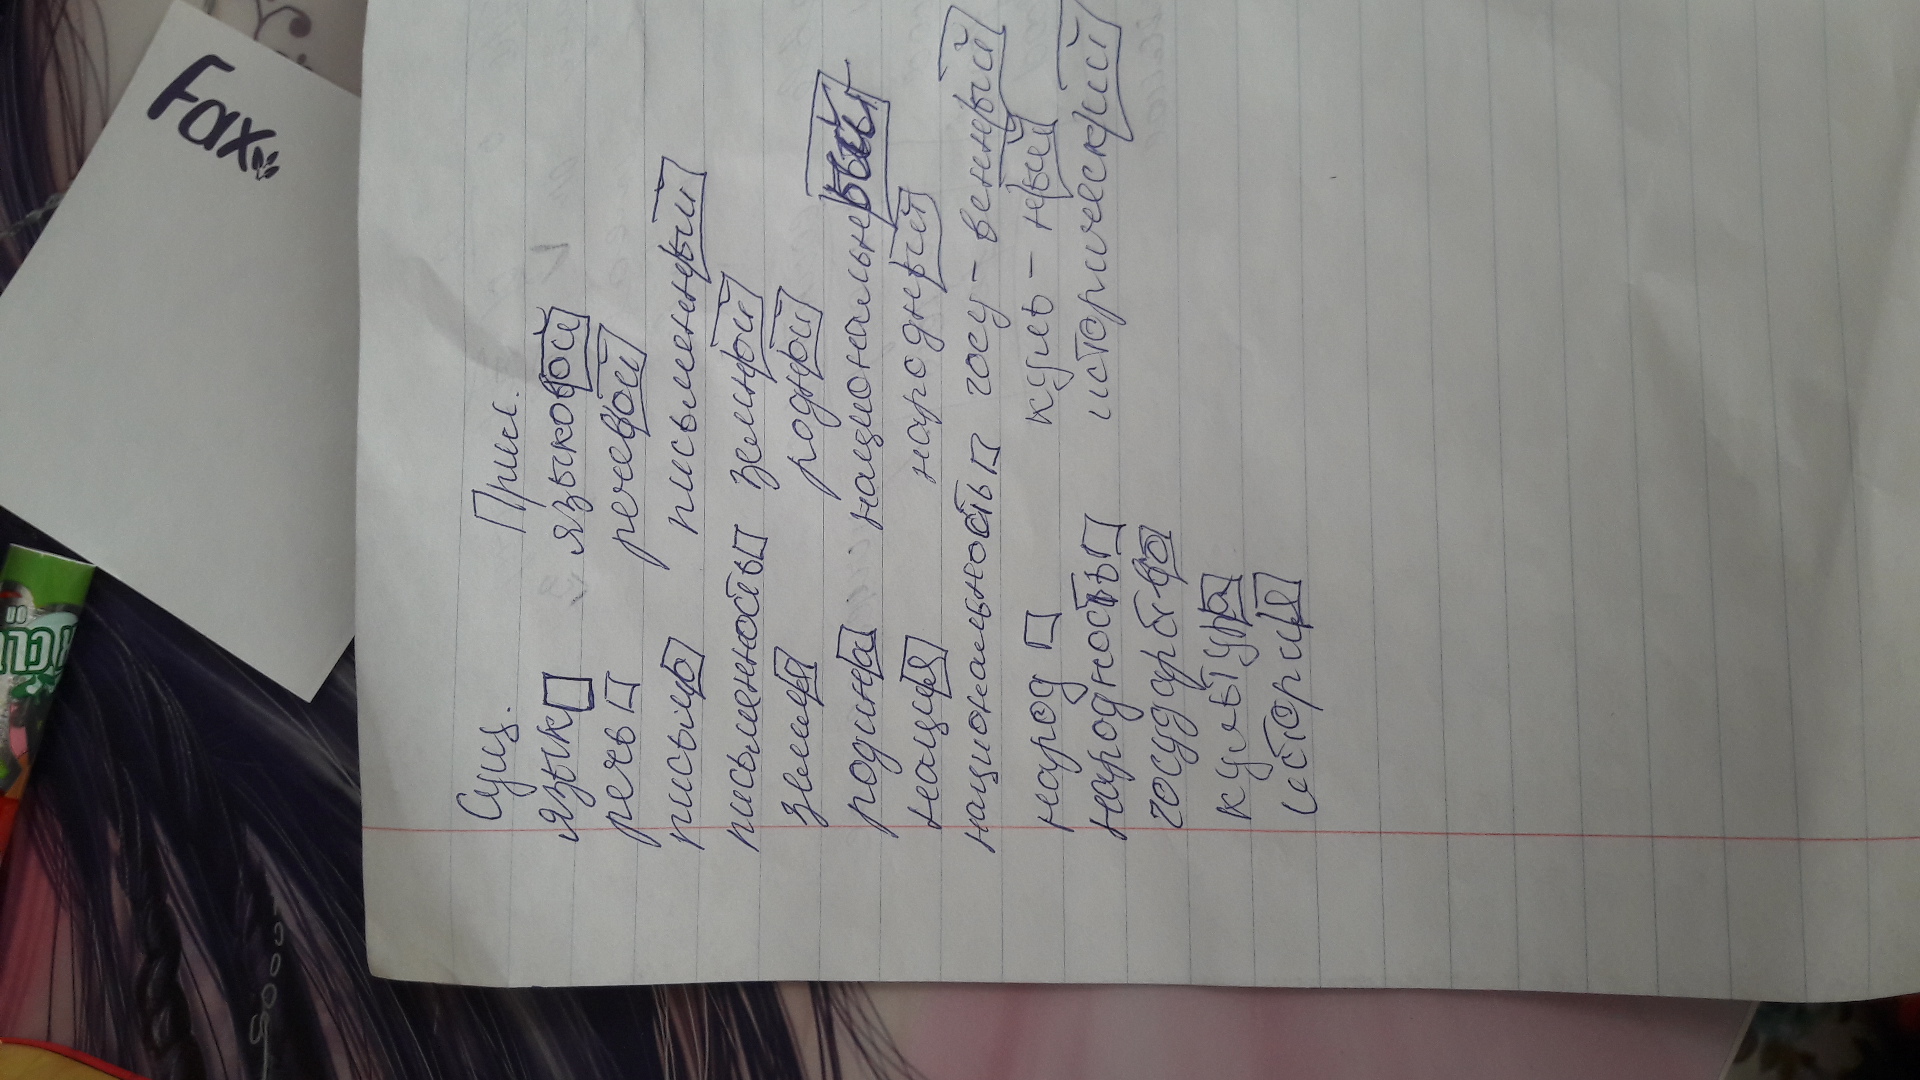 Fax
Сущ. Прил.
язык языковой
речь речевой
письмо письменный
письменность земной
земля родной
родина национальный
нация народный
национальность госу - венный
народ куль - ный
народность исторический
государство
культура
история